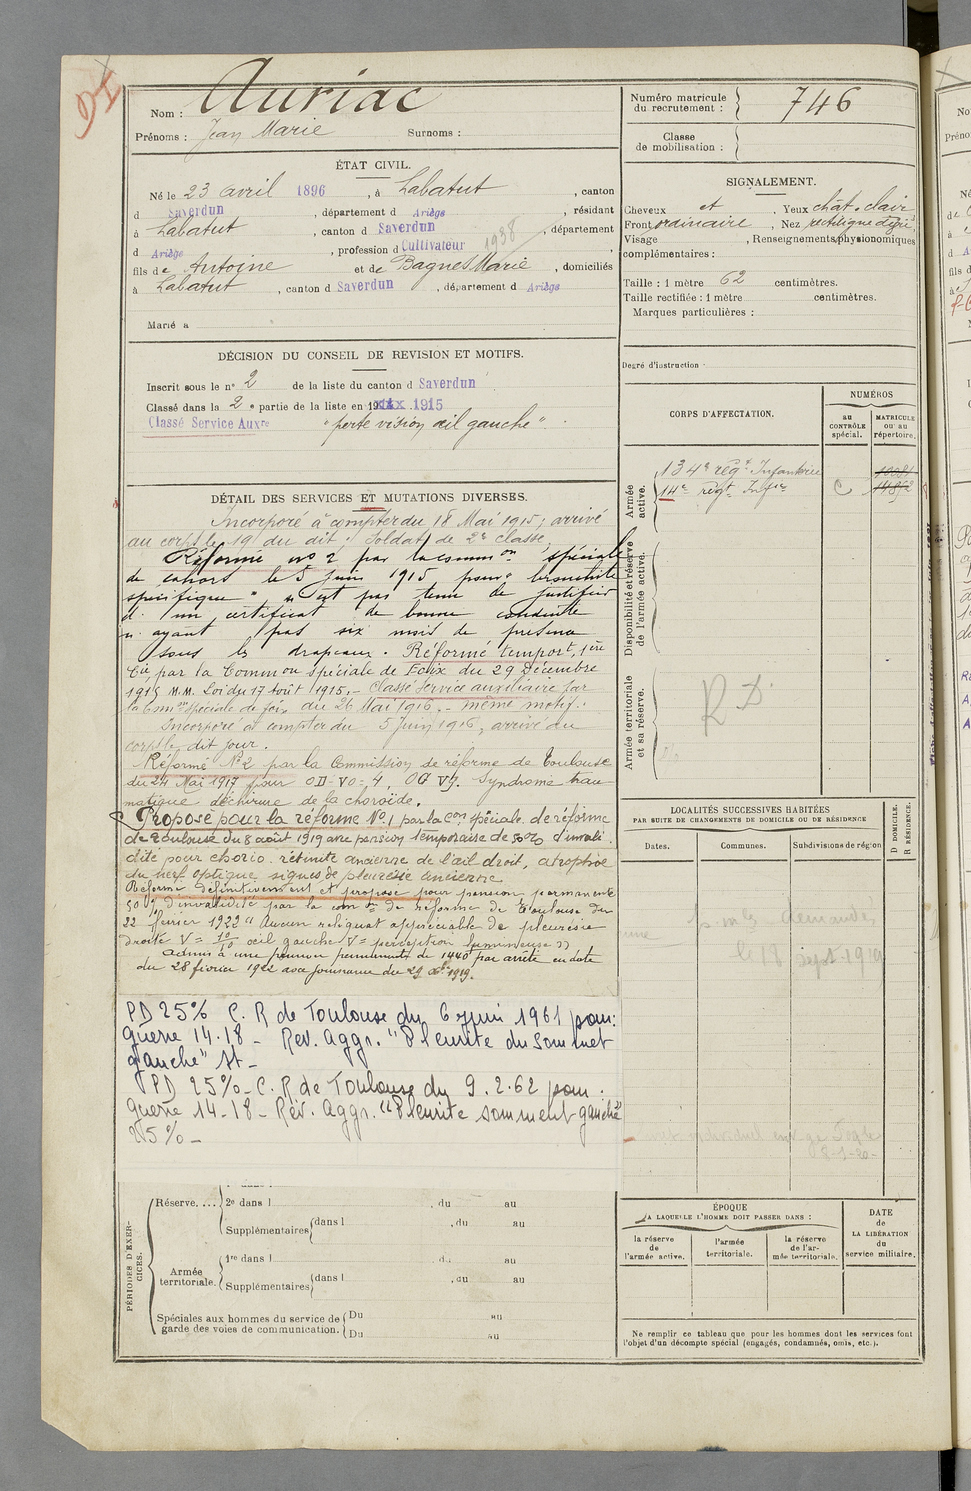 Nom : Auriac
Prénoms : Jean Marie Surnoms :
Numéro matricule du recrutement : 746
Classe de mobilisation :
ÉTAT CIVIL.
Né le 23 avril 1896, à Labatut, canton
d Saverdun, département d Ariège, résidant
à Labatut, canton d Saverdun, département
d Ariège, profession d Cultivateur 1938
fils de Antoine et de Bagnes Marie, domiciliés
à Labatut, canton d Saverdun, département d Ariège
Marié à
SIGNALEMENT.
Cheveux et, Yeux chât. clair
Front ordinaire, Nez rectiligne
Visage, Renseignements physionomiques
complémentaires :
Taille : 1 mètre 62 centimètres.
Taille rectifiée : 1 mètre centimètres.
Marques particulières :
Degré d'instruction
DÉCISION DU CONSEIL DE REVISION ET MOTIFS.
Inscrit sous le n° 2 de la liste du canton d Saverdun
Classé dans la 2e partie de la liste en 1915
Classé Service Auxre "perte vision œil gauche"
CORPS D'AFFECTATION.
NUMÉROS
au CONTRÔLE spécial.
MATRICULE ou au répertoire.
Armée active.
134e régt Infanterie
14e régt Infie
Disponibilité et réserve de l'armée active.
Armée territoriale et sa réserve.
R D
DÉTAIL DES SERVICES ET MUTATIONS DIVERSES.
Incorporé à compter du 18 Mai 1915, arrivé
au corps le 19 du dit. Soldat de 2e classe
Réformé no 2 par la common spéciale
de cahors le 5 juin 1915 pour "bronchite
spécifique" n'est pas tenu de justifier
d'un certificat de bonne conduite
n'ayant pas six mois de présence
sous les drapeaux. Réformé tempore, 1ère
Cie, par la Common spéciale de Foix du 29 Décembre
1915 M.M. Loi du 17 Août 1915. - Classé service auxiliaire par
la Comon spéciale de foix du 26 Mai 1916. - même motif.
Incorporé à compter du 5 Juin 1916, arrivé au
corps le dit jour.
Réformé N° 2 par la Commission de réforme de Toulouse
du 24 Mai 1917 pour OD-VO=4, OG V7. Syndrome trau
matique déchirure de la choroïde.
Proposé pour la réforme N° 1 par la Con spéciale de réforme
de Toulouse du 8 août 1919 avec pension temporaire de 50% d'invali
dité pour chorio-rétinite ancienne de l'œil droit, atrophie
du nerf optique, signes de pleurésie ancienne
Réformé définitivement et proposé pour pension permanente
50% d'invalidité par la com on de réforme de Toulouse du
22 février 1922 "Aucun reliquat appréciable de pleurésie
droite V = 10/10 œil gauche V = perception lumineuse"
Admis à une pension permanente de 1440 par arrêté en date
du 28 février 1922 avec jouissance du 29 1919.
PD 25% C. R de Toulouse du 6 juin 1961 pour:
guerre 14.18 - Rev. Aggr. "Pleurite du Sommet
gauche" St -
PD 25% - C. R de Toulouse du 9.2.62 pour :
guerre 14-18 - Rév. Aggr. "Pleurite somment gauche"
25% -
LOCALITÉS SUCCESSIVES HABITÉES
PAR SUITE DE CHANGEMENTS DE DOMICILE OU DE RÉSIDENCE
Dates. Communes. Subdivisions de région
D DOMICILE. R RÉSIDENCE.
le 18 Sept 1919
PÉRIODES D'EXERCICES.
Réserve.... 2e dans l , du au
Supplémentaires dans l , du au
Armée territoriale. 1re dans l du au
Supplémentaires dans l , du au
Spéciales aux hommes du service de garde des voies de communication. Du au
Du au
ÉPOQUE
A LAQUELLE L'HOMME DOIT PASSER DANS :
la réserve de l'armée active.
l'armée territoriale.
la réserve de l'armée territoriale.
DATE de LA LIBÉRATION du service militaire.
Ne remplir ce tableau que pour les hommes dont les services font
l'objet d'un décompte spécial (engagés, condamnés, omis, etc.).